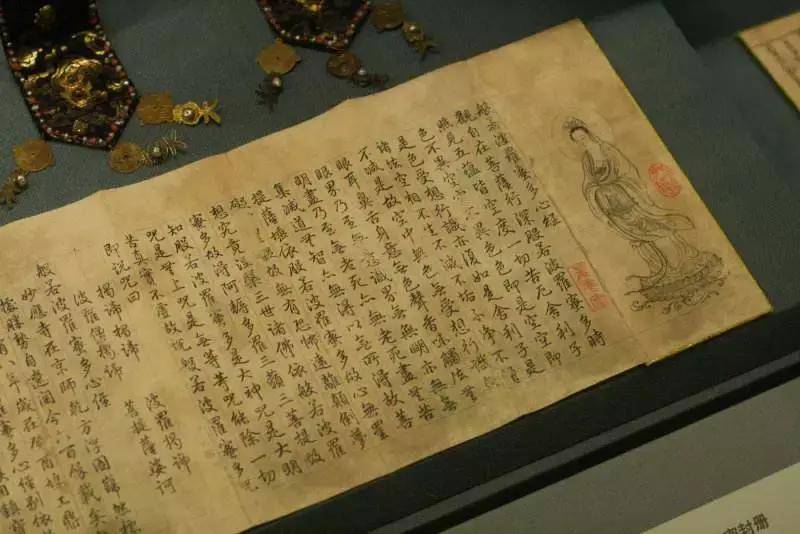 般若波羅蜜多心經
觀自在菩薩行深般若波羅蜜多時
照見五蘊皆空度一切苦厄舍利子
色不異空空不異色色即是空空即
是色受想行識亦復如是舍利子是
諸法空相不生不滅不垢不淨不增
不減是故空中無色無受想行識無
眼耳鼻舌身意無色聲香味觸法無
眼界乃至無意識界無無明亦無無
明盡乃至無老死亦無老死盡無苦
集滅道無智亦無得以無所得故菩
提薩埵依般若波羅蜜多故心無罣
礙無罣礙故無有恐怖遠離顛倒夢
想究竟涅槃三世諸佛依般若波羅
蜜多故得阿耨多羅三藐三菩提故
知般若波羅蜜多是大神咒是大明
咒是無上咒是無等等咒能除一切
苦真實不虛故說般若波羅蜜多咒
即說咒曰
揭諦揭諦 波羅揭諦
波羅僧揭諦 菩提薩婆訶
般若波羅蜜多心經
妙應寺在京師乾方浮圖巋然標
勝勢自遼閱今六百餘載矣
歲在癸酉
封册